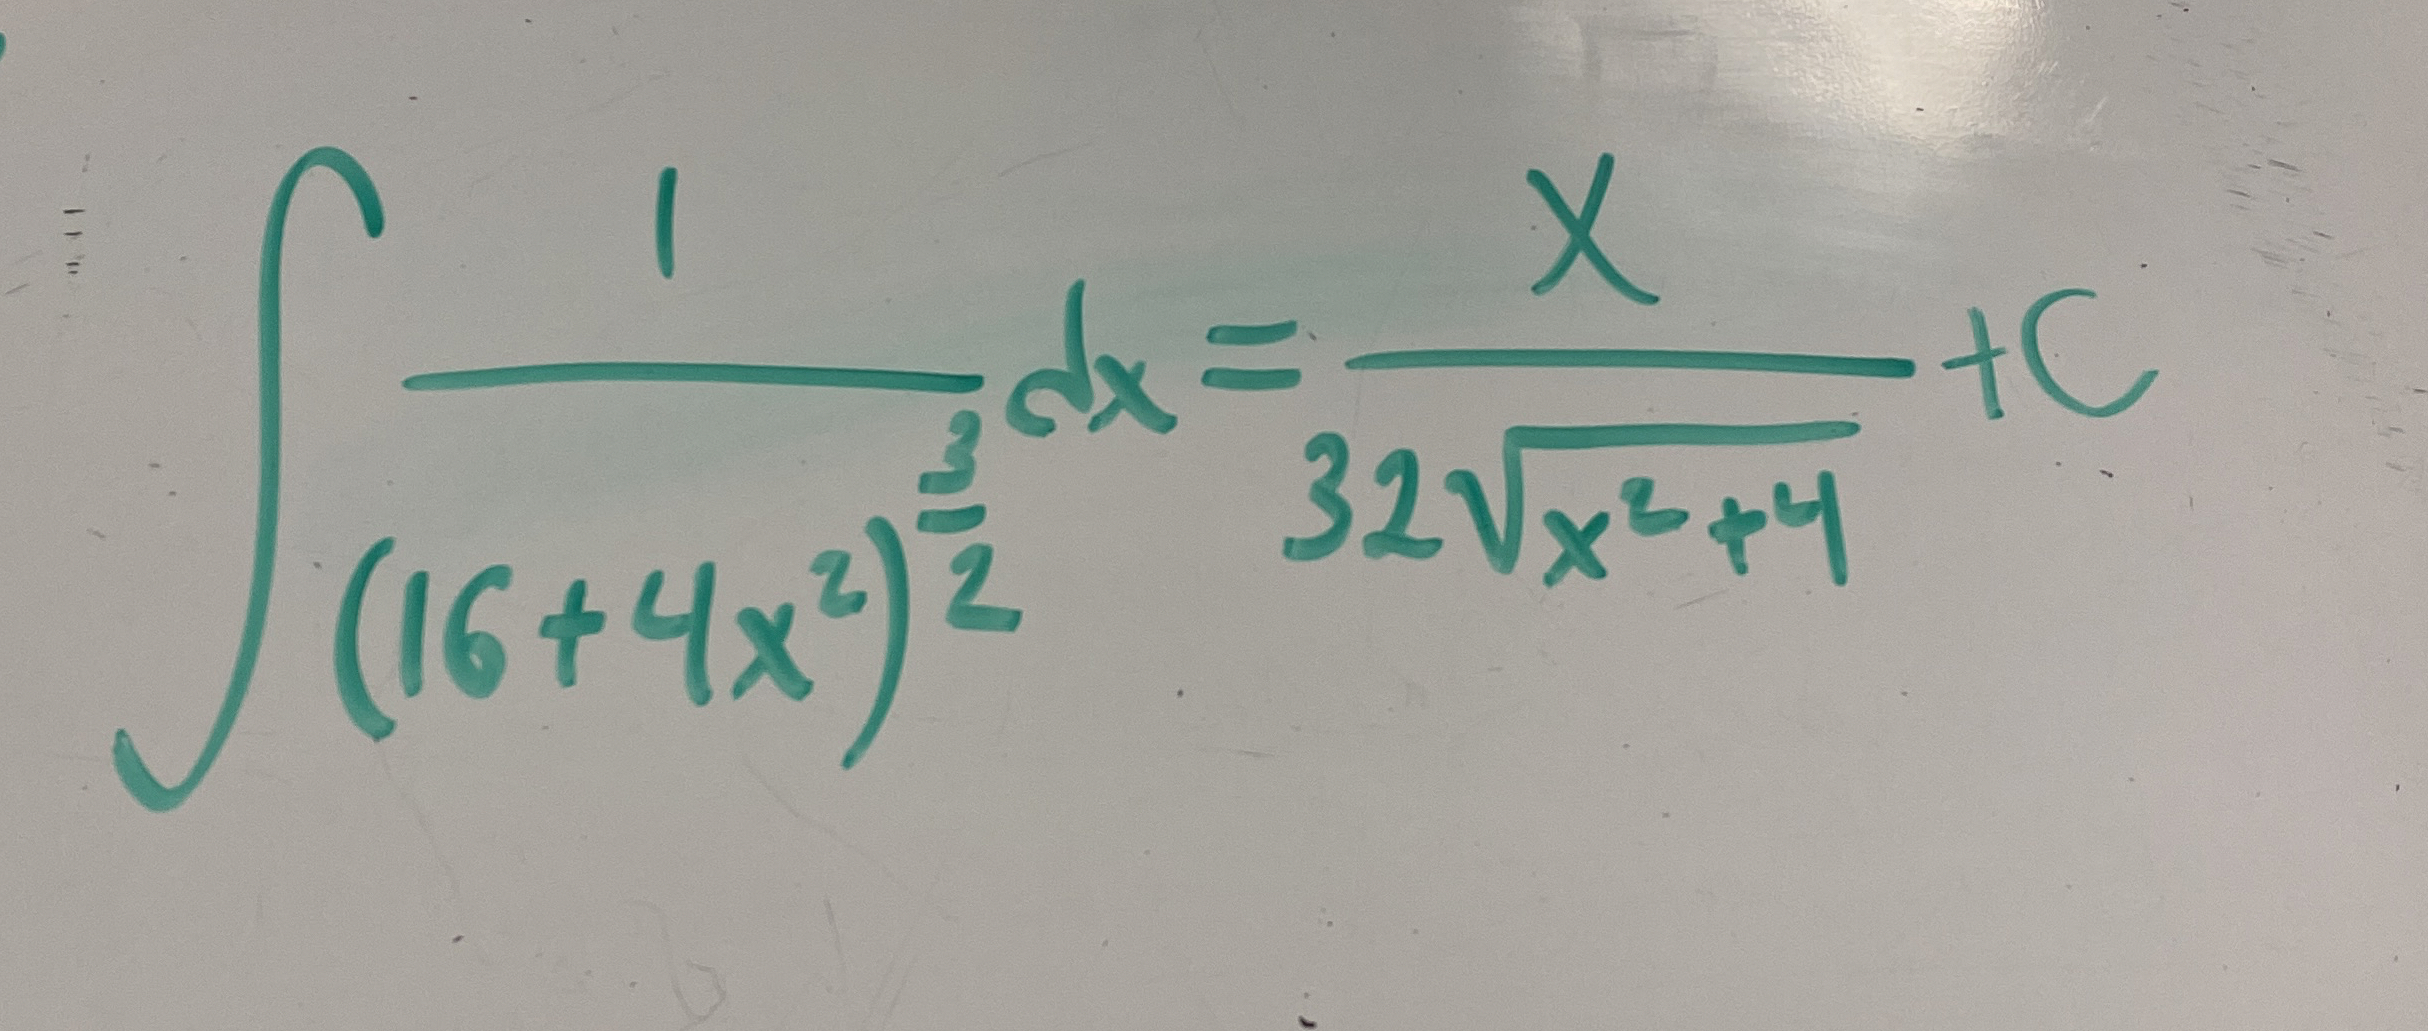 ∫ 1/(16+4x²)^(3/2) dx = x/(32√(x²+4)) + C